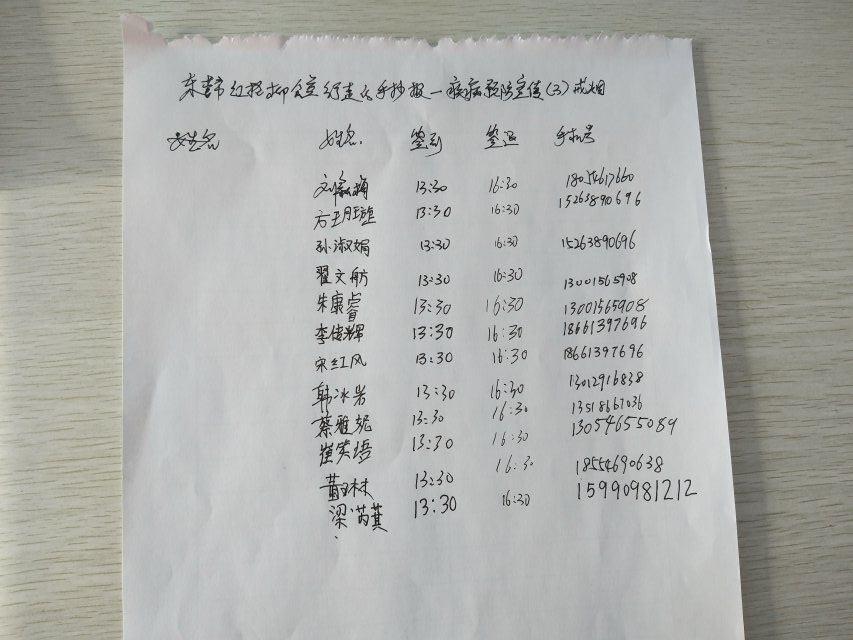 红 行走的手抄报一疾病预防宣传(3)戒烟
姓名 姓名. 签到 签退 手机号
刘 13:30 16:30 18054617660
方 13:30 16:30 15263890696
孙淑娟 13:30 16:30 15263890696
翟文舫 13:30 16:30 13001565908
朱康睿 13:30 16:30 13001565908
李俊辉 13:30 16:30 18661397696
宋红风 13:30 16:30 18661397696
韩冰岩 13:30 16:30 13012916838
蔡雅妮 13:30 16:30 13518667036
崔笑语 13:30 16:30 13054655089
黄 林 13:30 16:30 18554690638
梁芮萁 13:30 16:30 15990981212